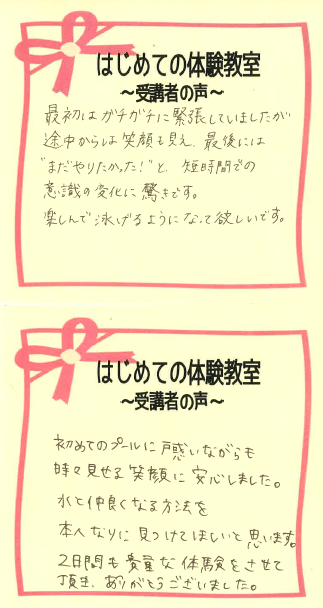 はじめての体験教室
～受講者の声～
最初はガチガチに緊張していましたが
途中からは笑顔も見え、最後には
"まだやりたかった！"と、短時間での
意識の変化に驚きです。
楽しんで泳げるようになって欲しいです。
はじめての体験教室
～受講者の声～
初めてのプールに戸惑いながらも
時々見せる笑顔に安心しました。
水と仲良くなる方法を
本人なりに見つけてほしいと思います。
2日間も貴重な体験をさせて
頂き、ありがとうございました。